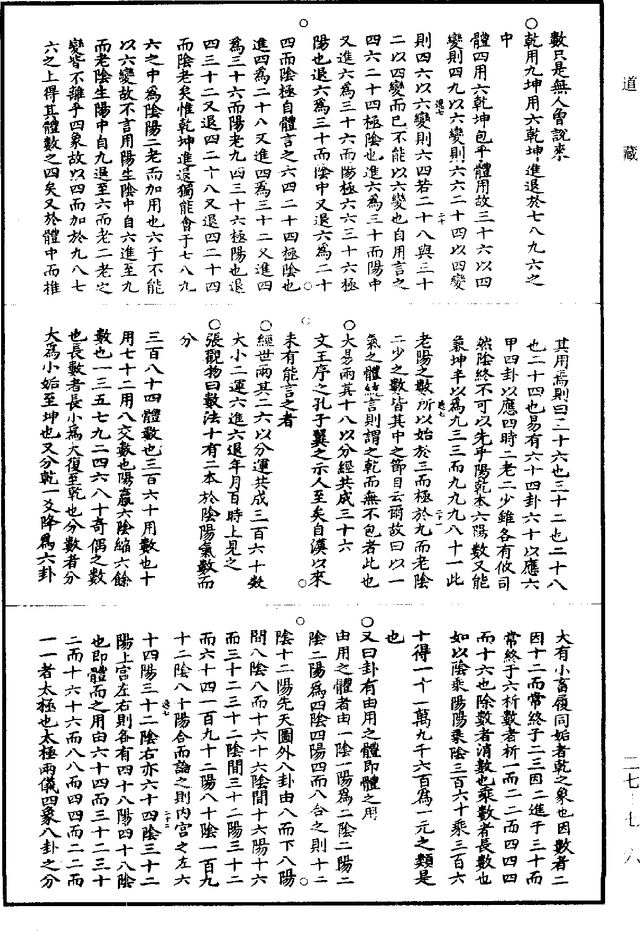 道藏
數只是無人曾說來
○乾用九坤用六乾坤進退於七八九六之
中
體四用六乾坤包乎體用故三十六以四
變則四九以六變則六六二十四以四變
則四六以六變則六四若二十八與三十
二以四變而已不能以六變也自用言之
四六二十四極陰也進六為三十而陽中
又進六為三十六而陽極六六三十六極
陽也退六為三十而陰中又退六為二十
四而陰極自體言之六四二十四極陰也
進四為二十八又進四為三十二又進四
為三十六而陽老九四三十六極陽也退
四三十二又退四二十八又退四二十四
而陰老矣惟乾坤進退獨能會于七八九
六之中為陰陽二老而加用也六子不能
以六變故不言用陽生陰中自六進至九
而老陰生陽中自九退至六而老二老之
變皆不離乎四象故以四而加於九八七
六之上得其體數之四矣又於體中而推
其用焉則曰二十六也三十二也二十八
也二十四也易有六十四卦六十以應六
甲四卦以應四時二老二少雖各有攸司
然陰終不可以先乎陽乾本六陽數又能
兼坤半以為九三三而九九九八十一此
老陽之數所以始於三而極於九而老陰
二少之數皆其中之節目云爾故曰以一
氣之體統言則謂之乾而無不包者此也
○大易兩其十八以分經共成三十六
文王序之孔子翼之示人至矣自漢以來
未有能言之者
○經世兩其二六以分運共成三百六十數
大小二運六進六退年月百時上見之
○張觀物曰數法十有二本於陰陽氣數而
分
三百八十四體數也三百六十用數也十
用七十二用八交數也陽贏六陰縮六餘
數也一三五七九二四六八十奇偶之數
也長數者長小為大復至乾也分數者分
大為小姤至坤也又分乾一爻降為六卦
大有小畜履同姤者乾之象也因數者二
因十二而常終于二三因二進于三十而
常終于六析數者析一而二二而四四四
而十六也除數者消數也乘數者長數也
如以陰乘陽陽乘陰三百六十乘三百六
十得一十一萬九千六百為一元之類是
也
○又曰卦有由用之體即體之用
由用之體者由一陰一陽為二陰二陽二
陰二陽為四陰四陽四而八合之則十二
陰十二陽先天圖外八卦由八而下八陽
間八陰八而十六十六陰間十六陽十六
而三十二三十二陰間三十二陽三十二
而六十四一百九十二陽八十陰一百九
十二陰八十陽合而論之則內宮之左六
十四陽三十二陰右亦六十四陰三十二
陽上宮左右則各有四十八陽四十八陰
也即體而之用由六十四而三十二三十
二而十六十六而八八而四四而二二而
一一者太極也太極兩儀四象八卦之分
二七—七一六